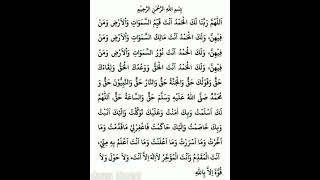 بِسْمِ اللهِ الرَّحْمٰنِ الرَّحِيْمِ
اَللّٰهُمَّ رَبَّنَا لَكَ الْحَمْدُ اَنْتَ قَيِّمُ السَّمٰوَاتِ وَاْلاَرْضِ وَمَنْ
فِيْهِنَّ، وَلَكَ الْحَمْدُ اَنْتَ مَالِكُ السَّمٰوَاتِ وَاْلاَرْضِ وَمَنْ
فِيْهِنَّ، وَلَكَ الْحَمْدُ اَنْتَ نُوْرُ السَّمٰوَاتِ وَاْلاَرْضِ وَمَنْ
فِيْهِنَّ، وَلَكَ الْحَمْدُ اَنْتَ الْحَقُّ وَوَعْدُكَ الْحَقُّ وَلِقَاءُكَ
حَقٌّ وَقَوْلُكَ حَقٌّ وَالْجَنَّةُ حَقٌّ وَالنَّارُ حَقٌّ وَالنَّبِيُّوْنَ حَقٌّ وَ
مُحَمَّدٌ صَلَّى اللهُ عَلَيْهِ وَسَلَّمَ حَقٌّ، وَالسَّاعَةُ حَقٌّ. اَللّٰهُمَّ
لَكَ اَسْلَمْتُ وَبِكَ اٰمَنْتُ وَعَلَيْكَ تَوَكَّلْتُ وَاِلَيْكَ اَنَبْتُ
وَبِكَ خَاصَمْتُ وَاِلَيْكَ حَاكَمْتُ فَاغْفِرْلِيْ مَاقَدَّمْتُ وَمَا
اَخَّرْتُ وَمَا اَسْرَرْتُ وَمَا اَعْلَنْتُ وَمَا اَنْتَ اَعْلَمُ بِهِ مِنِّيْ،
اَنْتَ الْمُقَدِّمُ وَاَنْتَ الْمُؤَخِّرُ لاَاِلٰهَ اِلاَّ اَنْتَ، وَلاَ حَوْلَ وَلاَ
قُوَّةَ اِلاَّ بِاللهِ